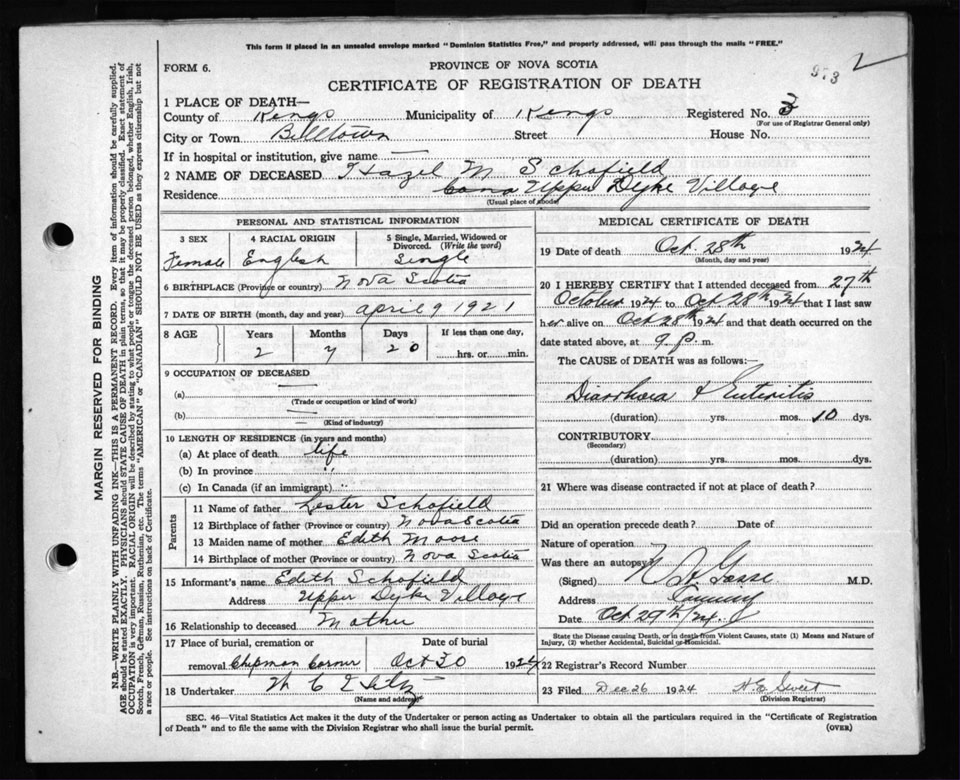 This form if placed in an unsealed envelope marked "Dominion Statistics Free," and properly addressed, will pass through the mails "FREE."
FORM 6.
PROVINCE OF NOVA SCOTIA
973
CERTIFICATE OF REGISTRATION OF DEATH
1 PLACE OF DEATH—
County of Kings Municipality of Kings Registered No. 3
(For use of Registrar General only)
City or Town Billtown Street House No.
If in hospital or institution, give name —
2 NAME OF DECEASED Hazel M Schofield
Residence Upper Dyke Village
(Usual place of abode)
PERSONAL AND STATISTICAL INFORMATION
3 SEX 4 RACIAL ORIGIN 5 Single, Married, Widowed or Divorced. (Write the word)
Female English Single
6 BIRTHPLACE (Province or country) Nova Scotia
7 DATE OF BIRTH (month, day and year) april 9 1921
8 AGE Years Months Days If less than one day,
2 7 20 hrs. or min.
9 OCCUPATION OF DECEASED —
(a)
(Trade or occupation or kind of work)
(b)
(Kind of industry)
10 LENGTH OF RESIDENCE (in years and months)
(a) At place of death life
(b) In province "
(c) In Canada (if an immigrant) "
Parents
11 Name of father Lester Schofield
12 Birthplace of father (Province or country) Nova Scotia
13 Maiden name of mother Edith Moore
14 Birthplace of mother (Province or country) Nova Scotia
15 Informant's name Edith Schofield
Address Upper Dyke Village
16 Relationship to deceased Mother
17 Place of burial, cremation or Date of burial
removal Chipman Corner Oct 30 1924
18 Undertaker
(Name and address)
MEDICAL CERTIFICATE OF DEATH
19 Date of death Oct. 28th 1924
(Month, day and year)
20 I HEREBY CERTIFY that I attended deceased from 27th
October 1924 to Oct. 28th 1924 that I last saw
her alive on Oct 28th 1924 and that death occurred on the
date stated above, at 9 p. m.
The CAUSE of DEATH was as follows:—
Diarrhoea & Enteritis
(duration) yrs. mos. 10 dys.
CONTRIBUTORY
(Secondary)
(duration) yrs. mos. dys.
21 Where was disease contracted if not at place of death?
Did an operation precede death? Date of
Nature of operation
Was there an autopsy?
(Signed) M.D.
Address Canning
Date Oct 29th/24
State the Disease causing Death, or in death from Violent Causes, state (1) Means and Nature of Injury, (2) whether Accidental, Suicidal or Homicidal.
22 Registrar's Record Number
23 Filed Dec 26 1924 H E Sweet
(Division Registrar)
SEC. 46—Vital Statistics Act makes it the duty of the Undertaker or person acting as Undertaker to obtain all the particulars required in the "Certificate of Registration
of Death" and to file the same with the Division Registrar who shall issue the burial permit. (OVER)
MARGIN RESERVED FOR BINDING
N.B.—WRITE PLAINLY WITH UNFADING INK—THIS IS A PERMANENT RECORD. Every item of information should be carefully supplied.
AGE should be stated EXACTLY. PHYSICIANS should STATE CAUSE OF DEATH in plain terms, so that it may be properly classified. Exact statement of
OCCUPATION is very important. RACIAL ORIGIN will be described by stating to what people or tongue the deceased person belonged, whether English, Irish,
Scotch, French, German, Russian, Ruthenian, etc. The terms "AMERICAN" or "CANADIAN" SHOULD NOT BE USED as they express citizenship but not
a race or people. See instructions on back of Certificate.